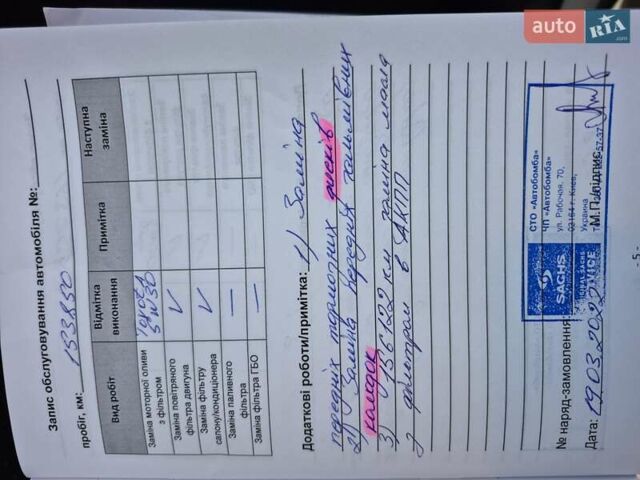 auto RIA.com
Запис обслуговування автомобіля №:
пробіг, км: 153850
Вид робіт Відмітка виконання Примітка Наступна заміна
Заміна моторної оливи з фільтром 5w30
Заміна повітряного фільтра двигуна ✓
Заміна фільтру салону/кондиціонера ✓
Заміна паливного фільтра —
Заміна фільтра ГБО —
Додаткові роботи/примітка: 1) Заміна
передніх тормозних дисків
2) Заміна передніх гальмівних
колодок
3) 156122 км заміна масла
з фільтром в АКПП
№ наряд-замовлення:
Дата: 19.03.2022
М.П. підпис
SACHS
SERVICE
СТО «Автобомба»
ЧП «Автобомба»
ул. Рабочая, 70,
г. Киев,
Украина
- 5 -